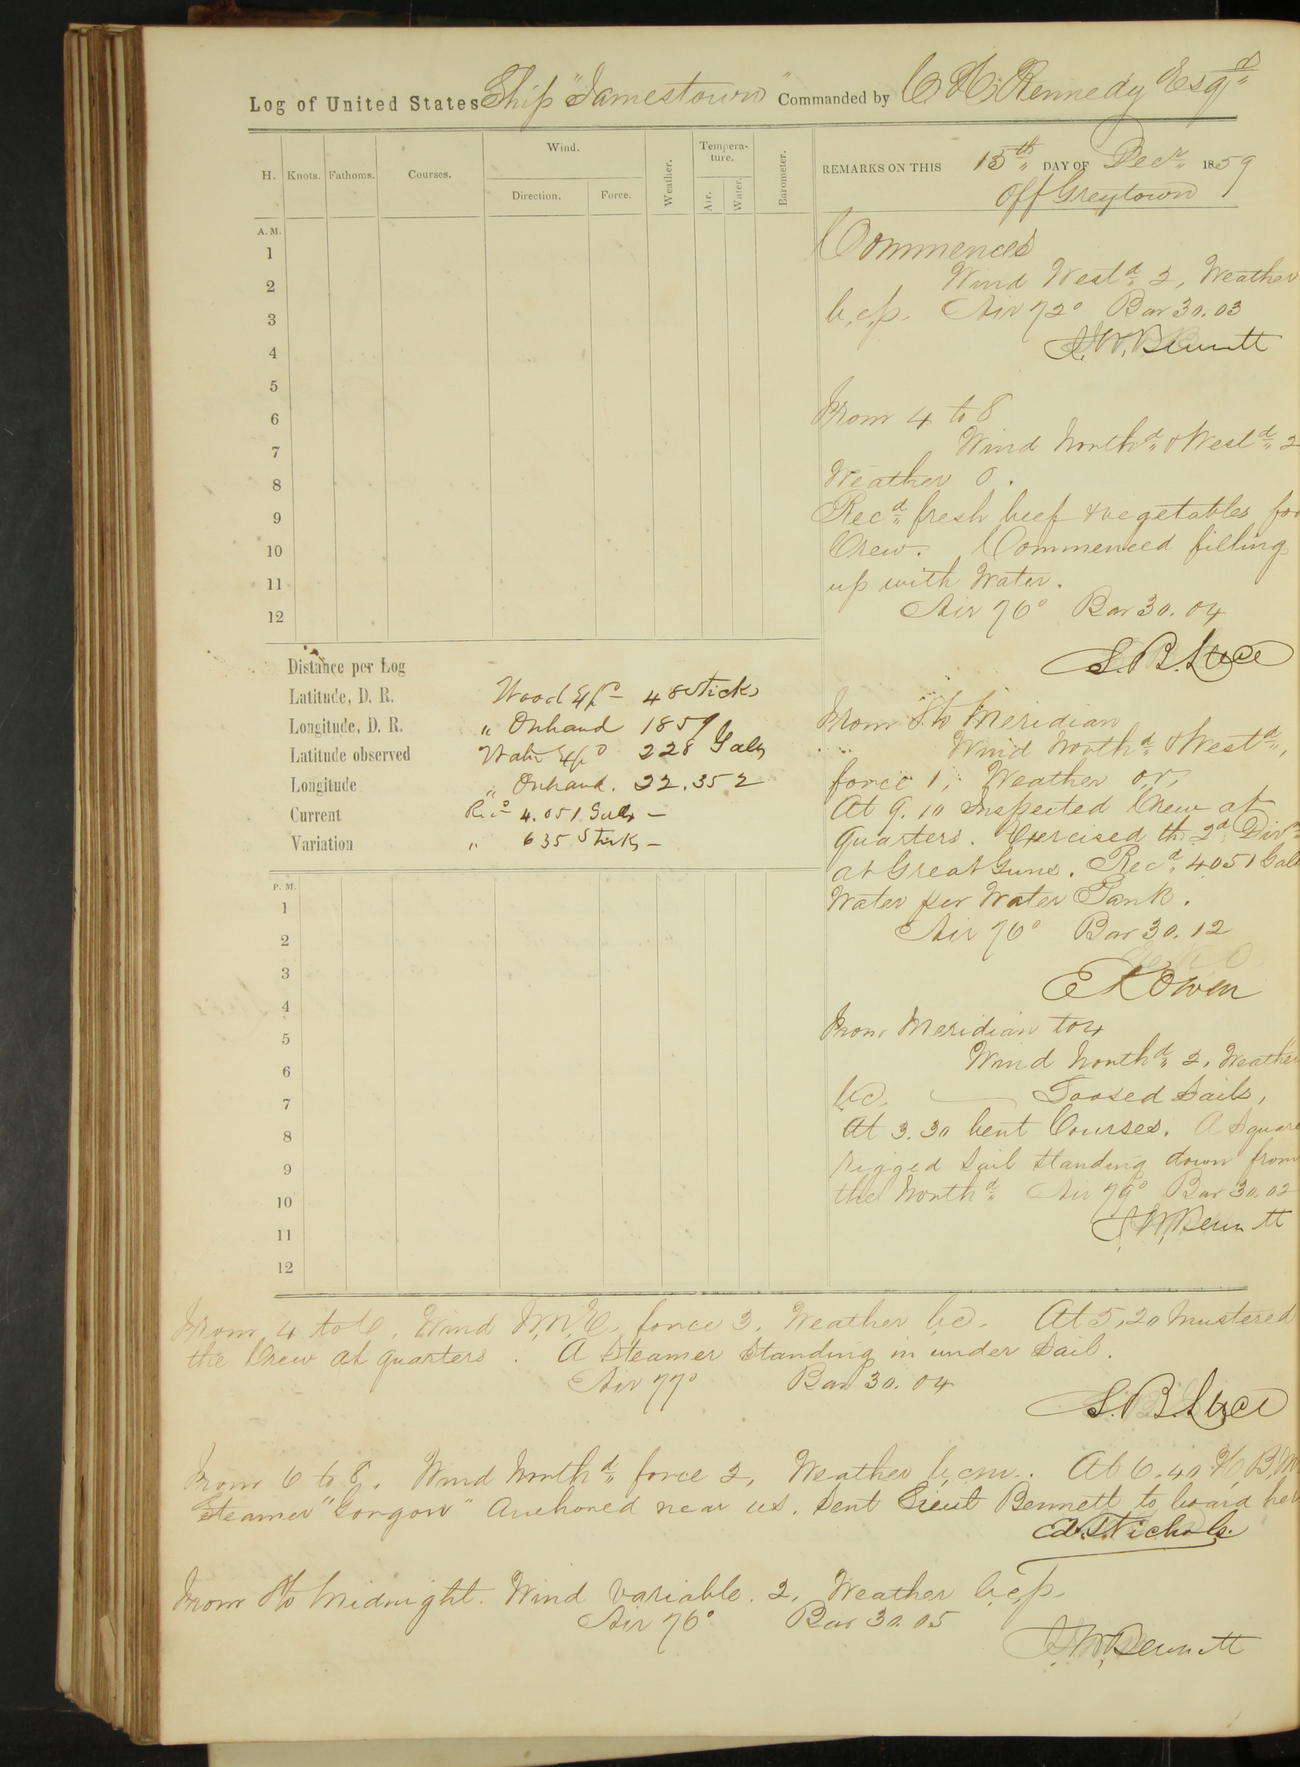 Log of United States Ship "Jamestown" Commanded by C H Kennedy Esqr
H. Knots. Fathoms. Courses. Wind. Direction. Force. Weather. Tempera-ture. Air. Water. Barometer.
REMARKS ON THIS 15th DAY OF Decr 1859
Off Greytown
A. M.
1
2
3
4
5
6
7
8
9
10
11
12
Commences
Wind Westd 2, Weather
b.c.p. Air 72° Bar 30.03
J.W. Bennett
From 4 to 8
Wind Northd & Westd 2
Weather o.
Recd fresh beef & vegetables for
Crew. Commenced filling
up with Water.
Air 76° Bar 30.04
S.B. Luce
Distance per Log
Latitude, D. R.
Longitude, D. R.
Latitude observed
Longitude
Current
Variation
Wood Expd 48 sticks
" Onhand 1859
Water Expd 228 Galls
" Onhand. 22.352
Recd 4.051 Galls —
" 635 Sticks —
From 8 to Meridian
Wind Northd & Westd,
force 1, Weather o.r,
At 9.10 Inspected Crew at
quarters. Exercised the 2d Divn
at Great Guns. Recd 4051 Galls
Water per Water Tank.
Air 76° Bar 30.12
E K Owen
P. M.
1
2
3
4
5
6
7
8
9
10
11
12
From Meridian to 4
Wind Northd 2, Weather
b.c. Loosed Sails,
At 3.30 bent Courses. A Square
rigged Sail standing down from
the Northd Air 79° Bar 30.02
J.W. Bennett
From 4 to 6, Wind N.N.E. force 3, Weather b.c. At 5.20 Mustered
the Crew at quarters. A Steamer standing in under Sail.
Air 77° Bar 30.04
S.B. Luce
From 6 to 8, Wind Northd force 2, Weather b.c.m. At 6.40 H B.M.
Steamer "Gorgon" anchored near us. Sent Lieut Bennett to board her
Ed. T. Nichols.
From 8 to Midnight. Wind variable. 2, Weather b.c.p.
Air 76° Bar 30.05
J.W. Bennett